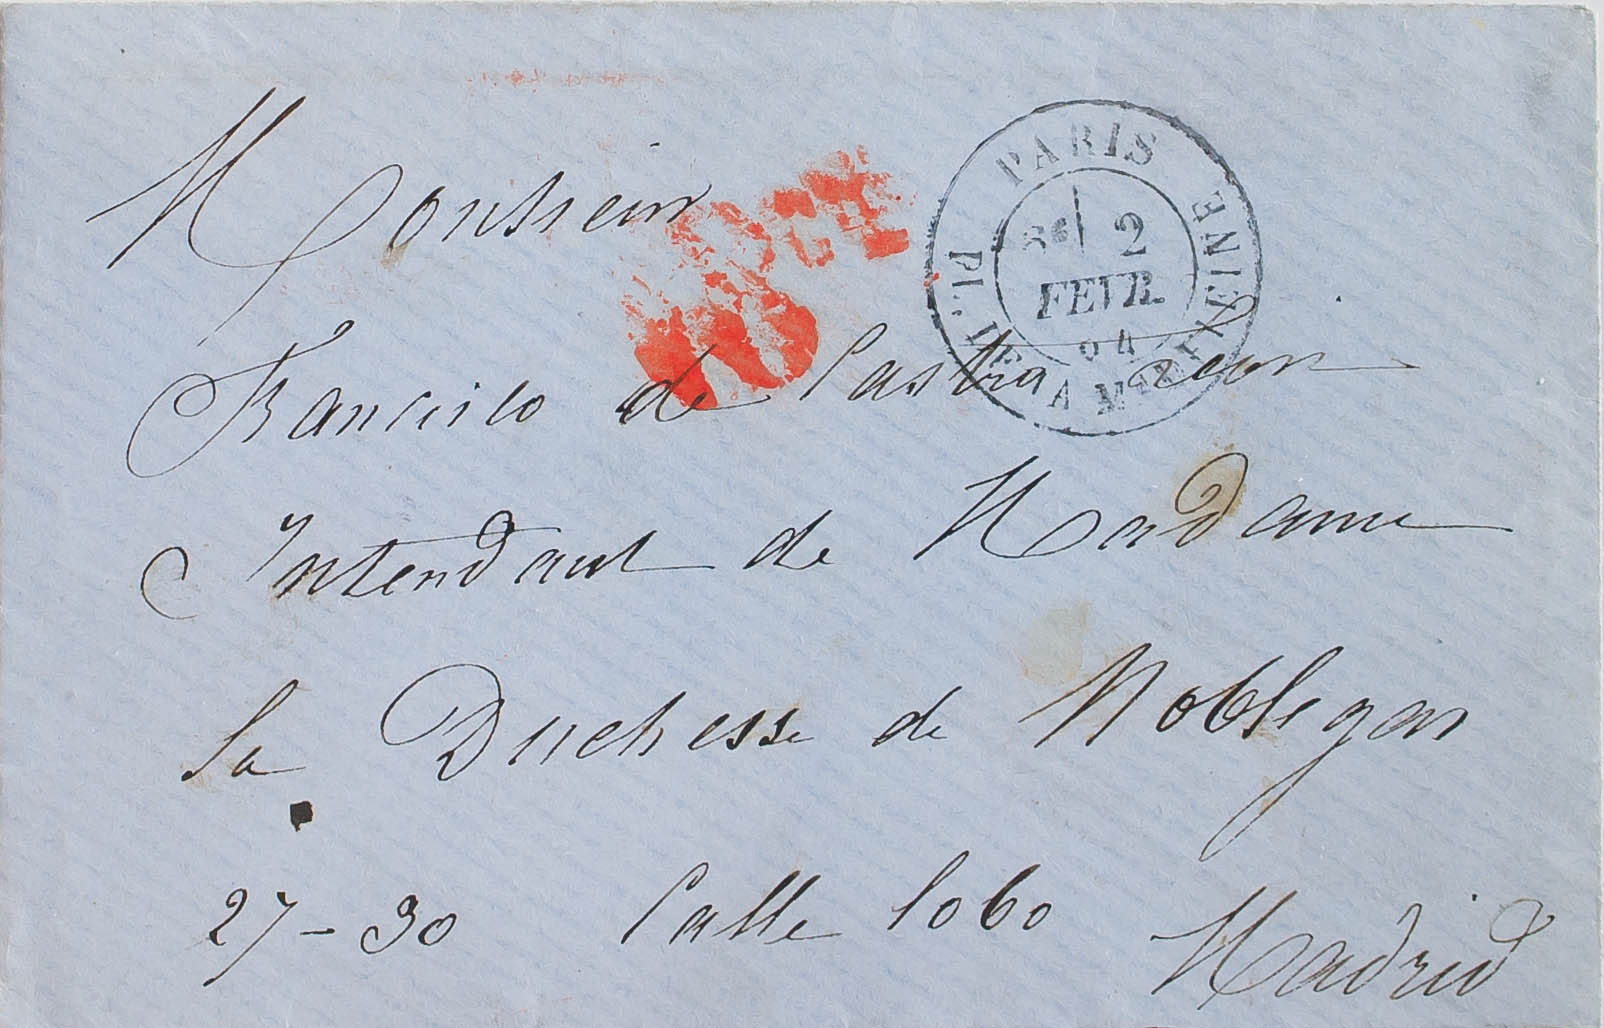 PARIS
PL. DE LA MADELEINE
2
FEVR.
04
Monsieur
Francisco de
Intendant de Madame
la Duchesse de Noblejas
27 - 30 Calle Lobo
Madrid